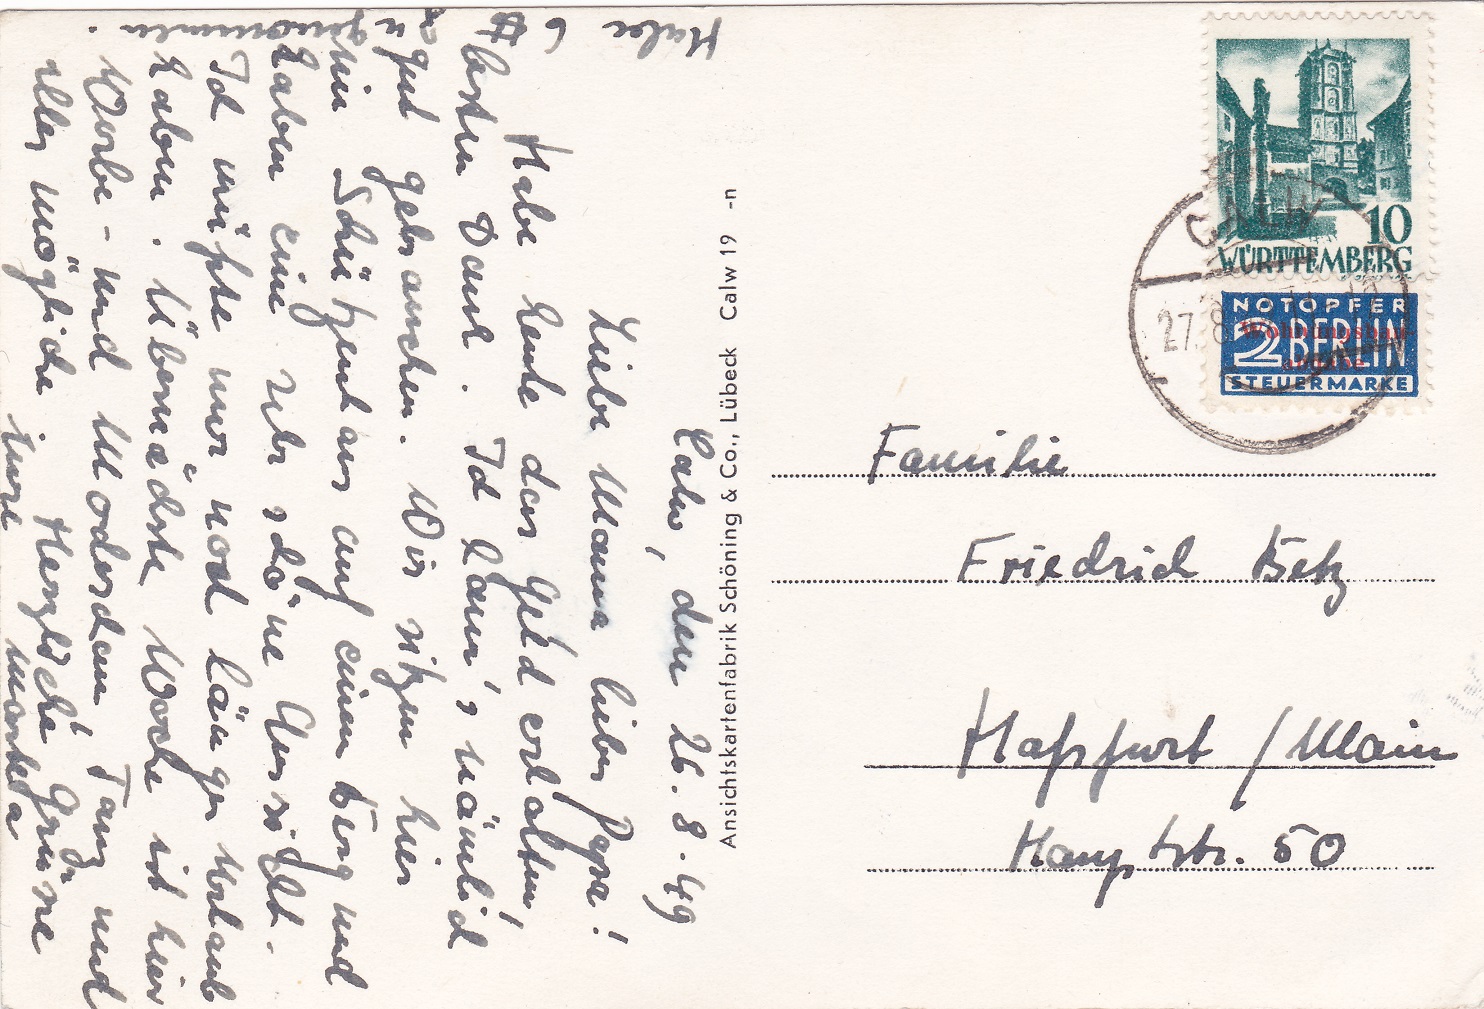 Calw, den 26.8.49
Liebe Mama lieber Papa!
Habe heute das Geld erhalten,
besten Dank. Ich kann's nämlich
gut gebrauchen. Wir sitzen hier
im Schützenhaus auf einem Berg und
haben eine sehr schöne Aussicht.
Ich müßte nur noch länger Urlaub
haben. Übernächste Woche ist hier
Werbe- und Modeschau, Tanz und
alles mögliche. Herzliche Grüsse
Eure
Habe 6 ℔
genommen.
Ansichtskartenfabrik Schöning & Co., Lübeck Calw 19 -n
10
WÜRTTEMBERG
NOTOPFER
2 BERLIN
STEUERMARKE
Wohnungsbau
abgabe
CALW
27.8.
Familie
Friedrich Betz
Haßfurt / Main
Hauptstr. 50